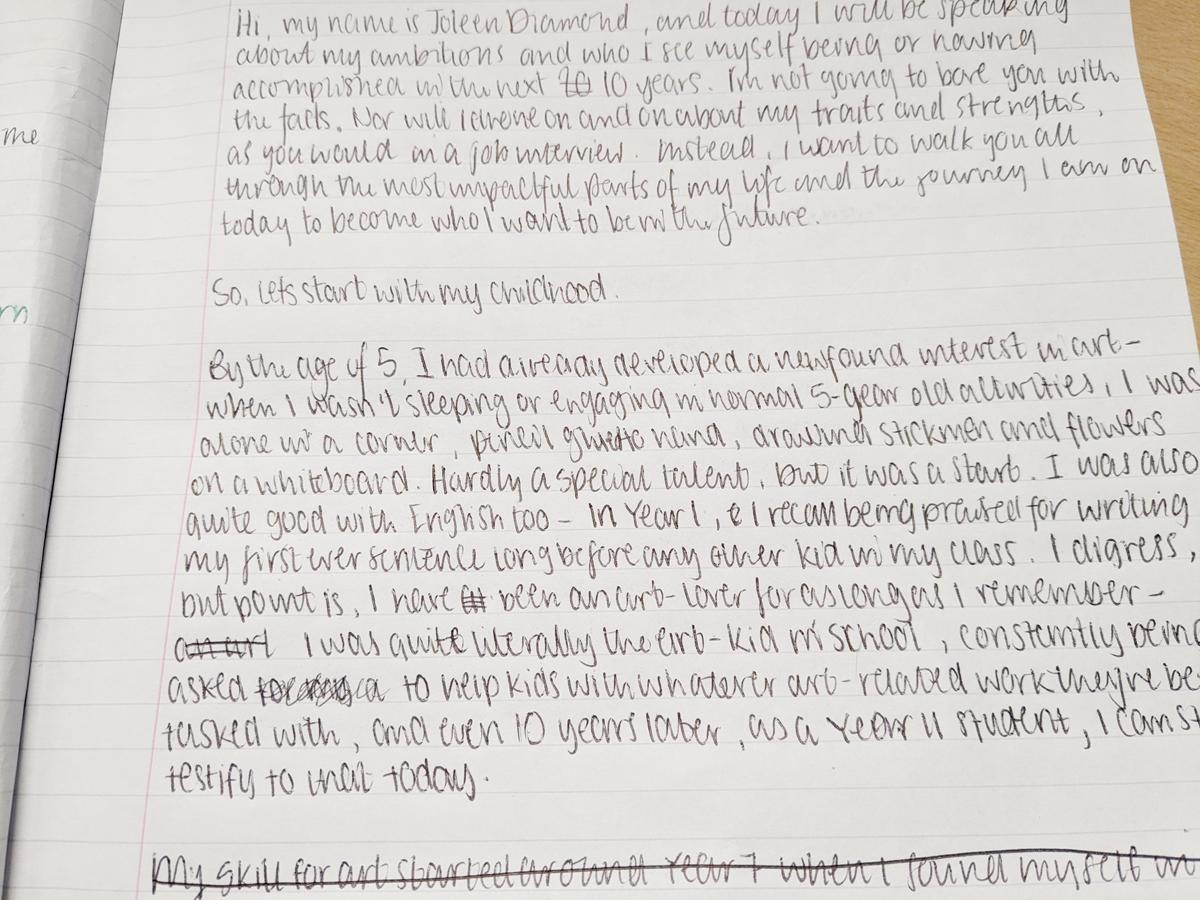 Hi, my name is Joleen Diamond, and today I will be speaking
about my ambitions and who I see myself being or having
accomplished in the next 10 years. I'm not going to bore you with
the facts. Nor will I drone on and on about my traits and strengths,
as you would in a job interview. Instead, I want to walk you all
through the most impactful parts of my life and the journey I am on
today to become who I want to be in the future.
So, lets start with my childhood.
By the age of 5, I had already developed a newfound interest in art-
when I wasn't sleeping or engaging in normal 5-year old activities, I was
alone in a corner, pencil glued to hand, drawing stickmen and flowers
on a whiteboard. Hardly a special talent, but it was a start. I was also
quite good with English too - in Year 1, I recall being praised for writing
my first ever sentence long before any other kid in my class. I digress,
but point is, I have been an art-lover for as long as I remember-
an art I was quite literally the art-kid in school, constantly being
asked to help kids with whatever art-related work they're be
tasked with, and even 10 years later, as a Year 11 student, I can st
testify to that today.
My skill for art started around Year 7 when I found myself in
me